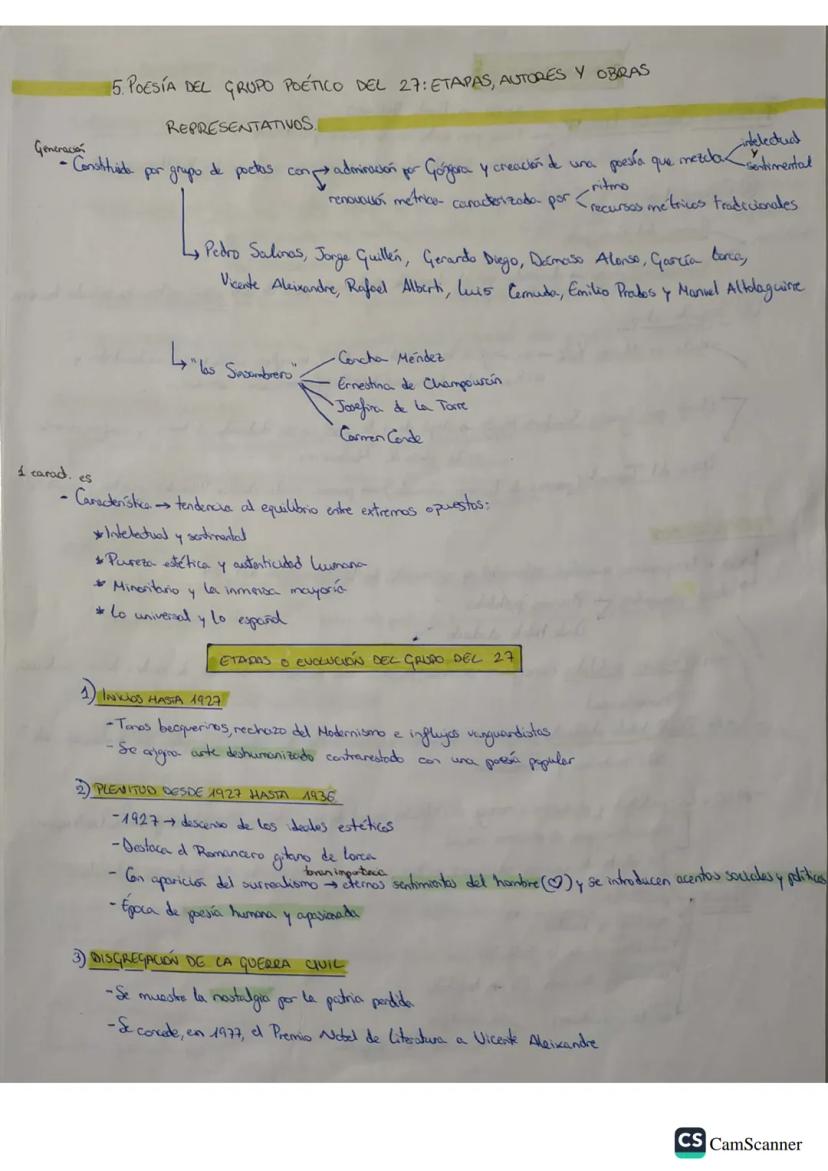 5. POESÍA DEL GRUPO POÉTICO DEL 27: ETAPAS, AUTORES Y OBRAS
REPRESENTATIVOS.
Generación
- Constituida por grupo de poetas con → admiración por Góngora y creación de una poesía que mezcla intelectual y sentimental
renovación métrica caracterizada por ritmo
recursos métricos tradicionales
↳ Pedro Salinas, Jorge Guillén, Gerardo Diego, Dámaso Alonso, García Lorca,
Vicente Aleixandre, Rafael Alberti, Luis Cernuda, Emilio Prados y Manuel Altolaguirre
↳ "las Sinsombrero"
Concha Méndez
Ernestina de Champourcín
Josefina de la Torre
Carmen Conde
1 caract. es
- Característica → tendencia al equilibrio entre extremos opuestos:
* Intelectual y sentimental
* Pureza estética y autenticidad humana
* Minoritario y la inmensa mayoría
* Lo universal y lo español
ETAPAS O EVOLUCIÓN DEL GRUPO DEL 27
1) INICIOS HASTA 1927
- Tonos becquerinos, rechazo del Modernismo e influjos vanguardistas
- Se arte deshumanizado contrarestado con una poesía popular
2) PLENITUD DESDE 1927 HASTA 1936
- 1927 → descenso de los ideales estéticos
- Destaca el Romancero gitano de Lorca
toman importancia
- Con aparición del surrealismo → eternos sentimientos del hombre (♡) y se introducen acentos sociales y políticos
- Época de poesía humana y apasionada
3) DISGREGACIÓN DE LA GUERRA CIVIL
- Se muestra la nostalgia por la patria perdida
- Se concede, en 1977, el Premio Nobel de Literatura a Vicente Aleixandre
CS CamScanner